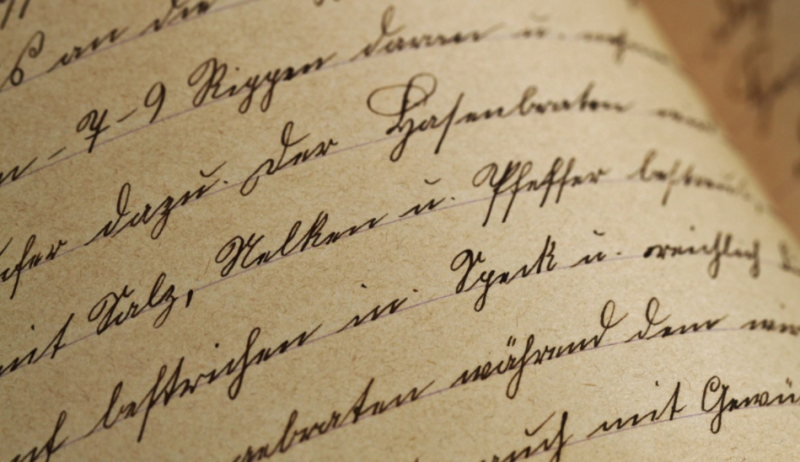 an die
7-9 Rippen daran u.
dazu. Der Hasenbraten
mit Salz, Nelken u. Pfeffer bestreut
bestrichen in. Speck u. reichlich
gebraten während dem
auch mit Gewü